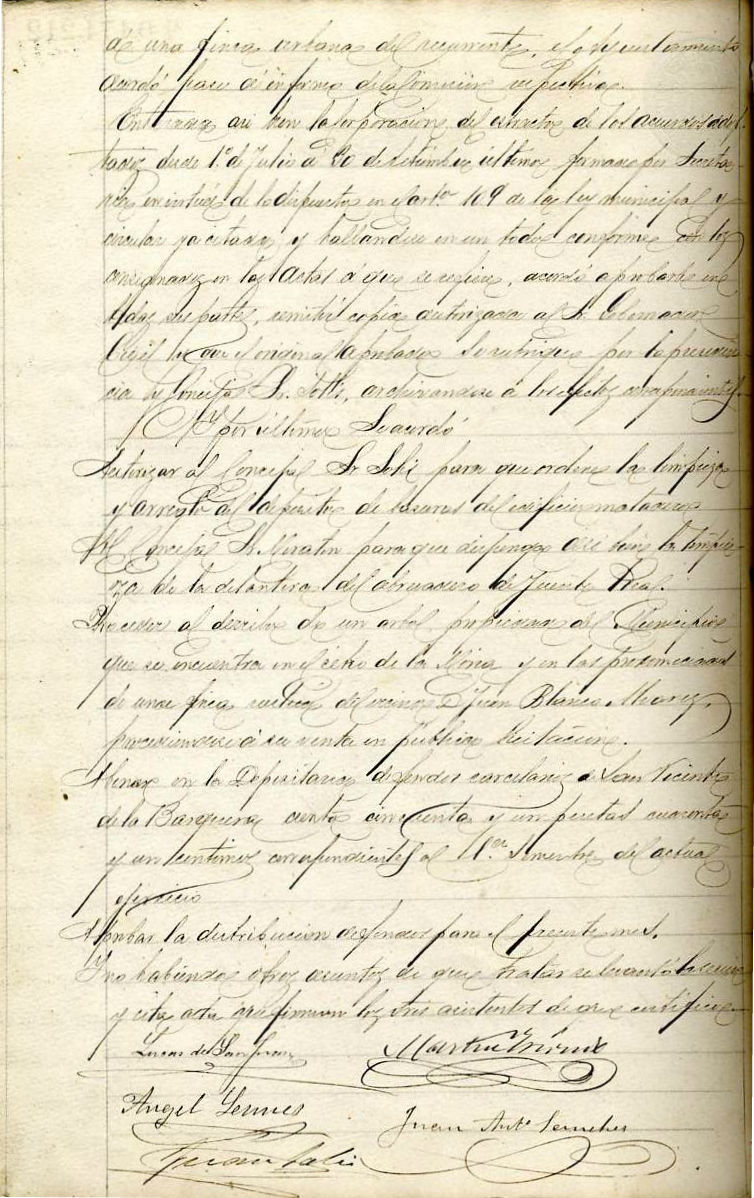 de una finca urbana del recurrente, el Ayuntamiento
acordó pase a informe de la Comisión respectiva.
Enterada asi bien la Corporación del extracto de los acuerdos adop-
tados desde 1.º de Julio a 30 de Setiembre último formado por Secreta-
ria en virtud de lo dispuesto en el arto 109 de la ley municipal y
circular ya citada y hallandose en un todo conforme con los
consignados en las actas a que se refiere, acordó aprobarle en
todas sus partes, remitir copia autorizada al Sr. Gobernador
Civil y que el original aprobado se rubrique por la presiden-
cia y Concejal Sr. Solis, archivandose a los efectos correspondientes.
Y por último Se acordó
Autorizar al Concejal Sr Solis para que ordene la limpieza
y arreglo del deposito de basuras del edificio matadero
Al Concejal Sr. Moraton para que disponga asi bien la limpie-
za de la delantera del abrevadero de Fuente Real.
Proceder al derribo de un arbol propiedad del Municipio
que se encuentra en el sitio de la y en las proximidades
de una finca rustica del vecino D. Juan Blanco Alvarez,
procediendose á su venta en pública licitación.
Abonar en la Depositaria de fondos carcelarios de San Vicente
de la Barquera ciento cincuenta y un pesetas cuarenta
y un centimos correspondientes al 1.er semestre del actual
ejercicio
Aprobar la distribución de fondos para el presente mes.
Y no habiendo otros asuntos de que tratar se levantó la sesion
y esta acta que firman los Sres asistentes de que certifico.
Lucas de San Juan
Martin
Angel
Juan Anto Sanchez
Juan Solis